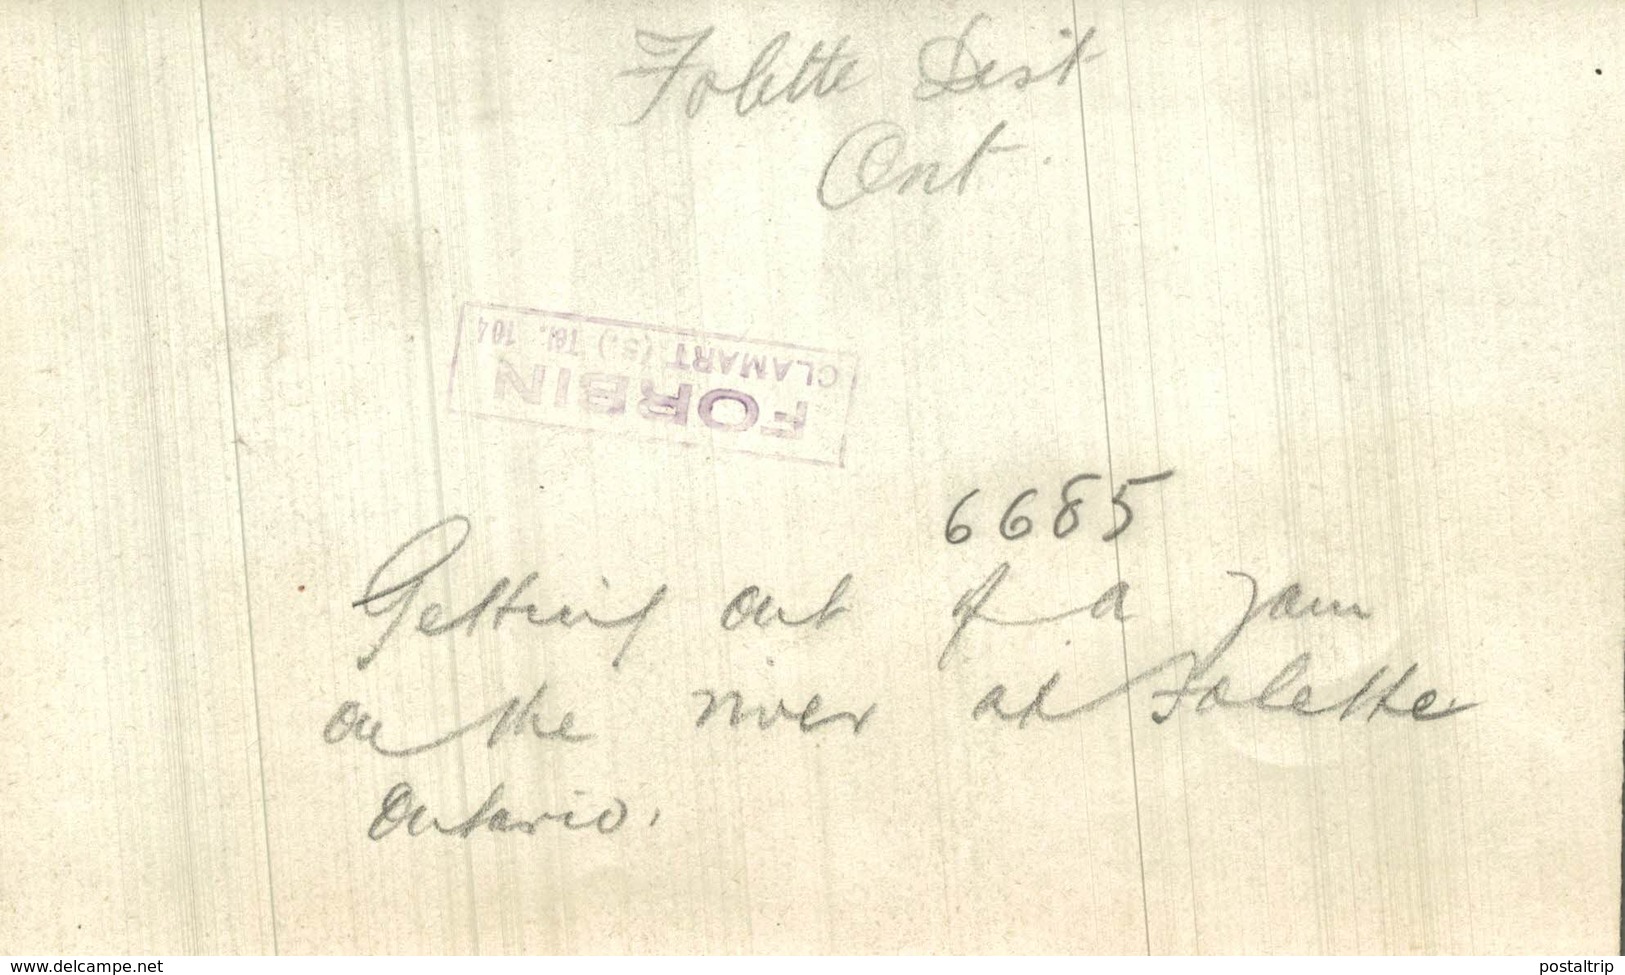 Folette Dist
Ont.
FORBIN
CLAMART (S.) Tél. 104
6685
Getting out of a Jam
on the river at Folette
Ontario.
www.delcampe.net
postaltrip